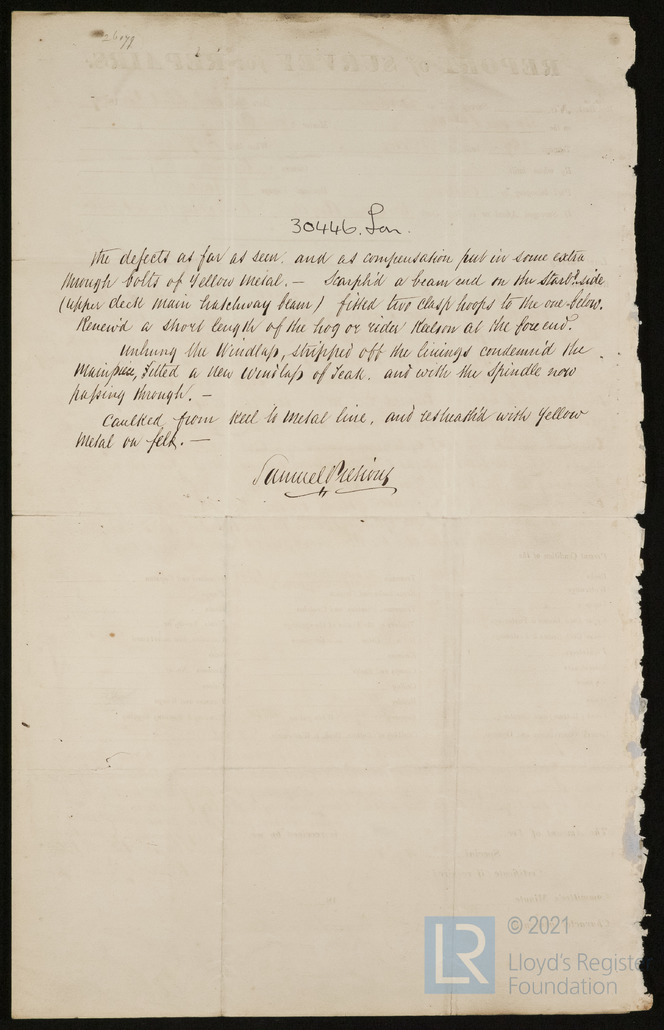 30446. Lon.
the defects as far as seen. and as compensation put in some extra
through bolts of Yellow Metal. — Scarph'd a beam end on the Starbd. side
(upper deck main hatchway beam) fitted two clasp hoops to the one below.
Renew'd a short length of the hog or rider Keelson at the fore end.
Unhung the Windlass, stripped off the linings condemn'd the
Mainpiece, Fitted a new Windlass of Teak. and with the Spindle now
passing through. —
Caulked from Keel to Metal line, and resheath'd with Yellow
Metal on felt. —
Samuel
REPORT of SURVEY for REPAIRS.
© 2021
LR
Lloyd's Register
Foundation